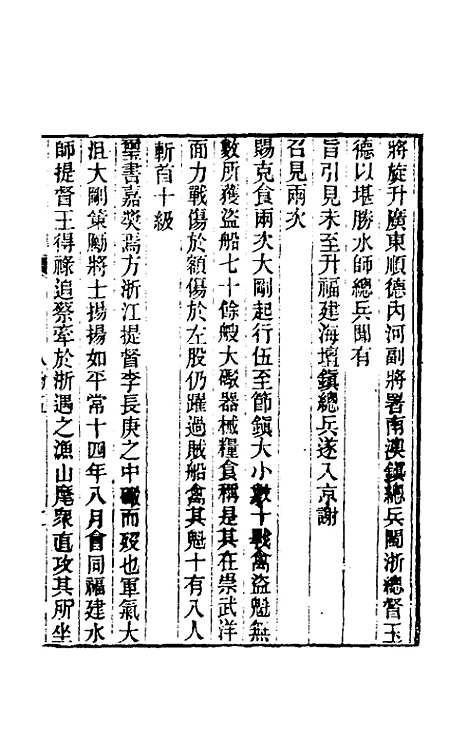 將旋升廣東順德內河副將署南澳鎭總兵閩浙總督玉
德以堪勝水師總兵聞有
旨引見未至升福建海壇鎭總兵遂入京謝
召見兩次
賜克食兩次大剛起行伍至節鎭大小數十戰禽盜魁無
數所獲盜船七十餘艘大礮器械糧食稱是其在崇武洋
面力戰傷於額傷於左股仍躍過賊船禽其魁十有八人
斬首十級
璽書嘉奬焉方浙江提督李長庚之中礮而歿也軍氣大
沮大剛策勵將士揚揚如平常十四年八月會同福建水
師提督王得祿追蔡牽於浙遇之漁山麾衆直攻其所坐